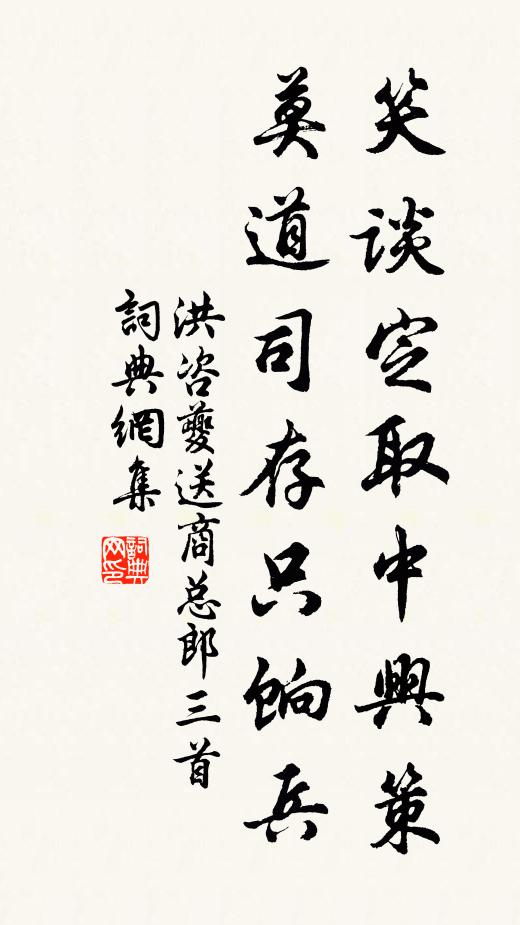 笑談定取中興策
莫道司存只餉兵
洪咨夔送商总郎三首
詞典網集
詞典網印